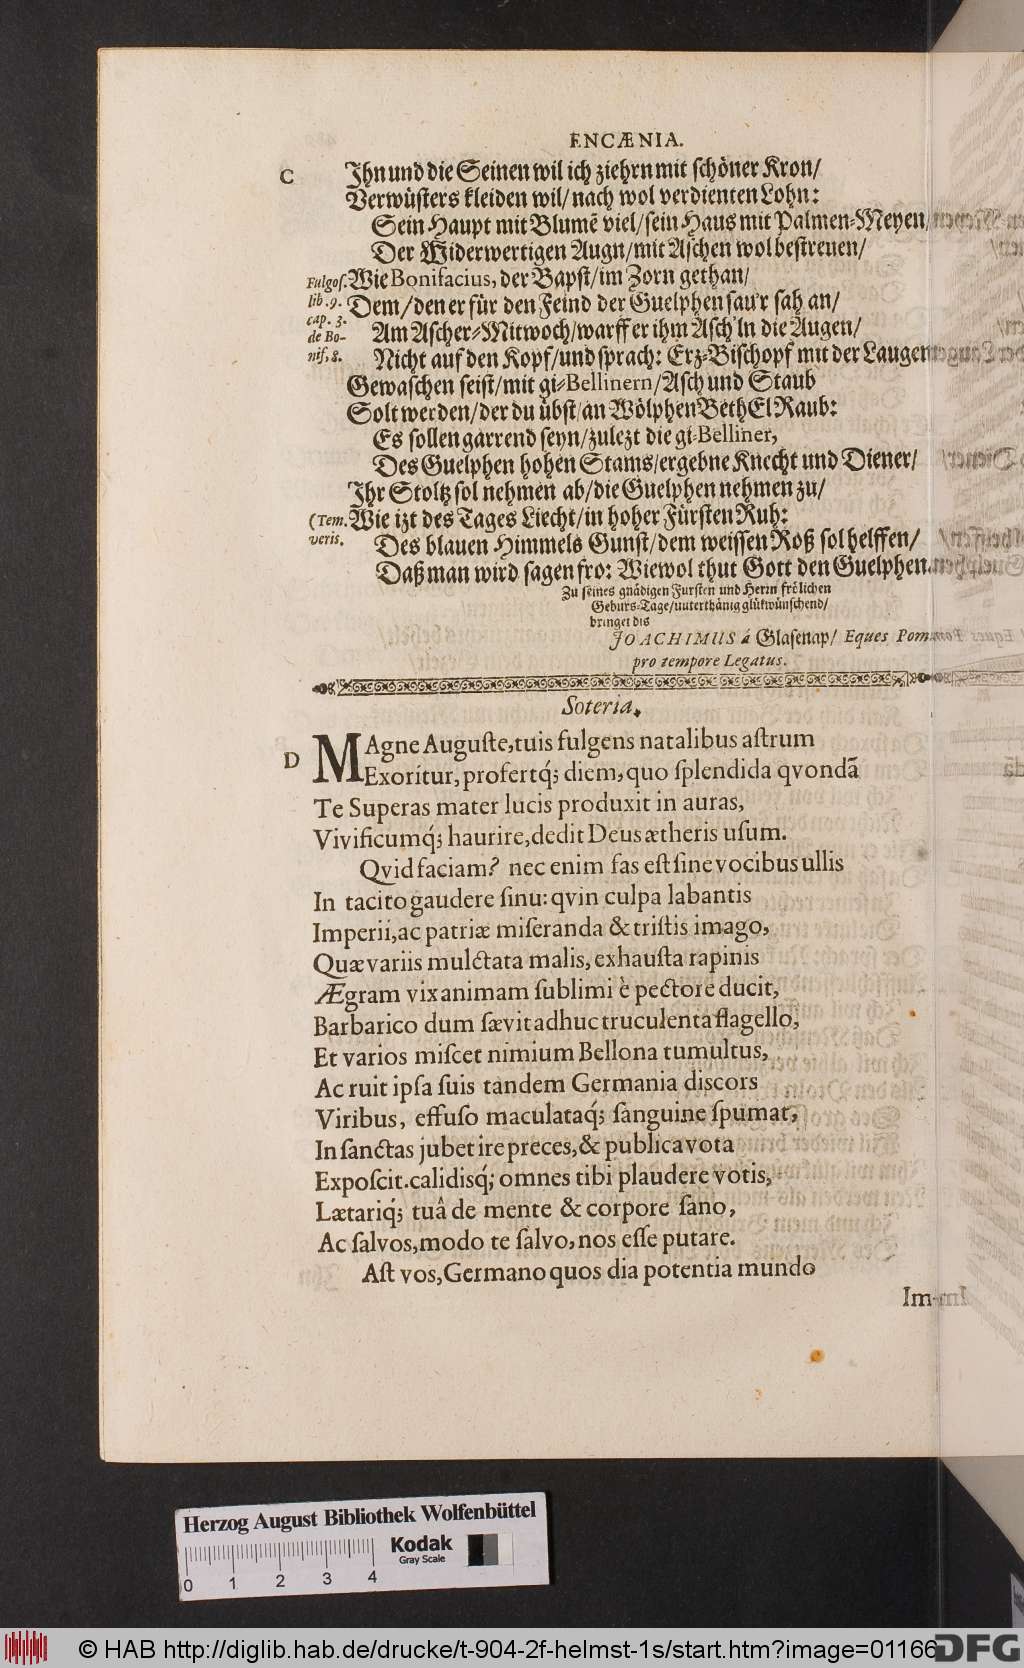 ENCÆNIA.
C
Ihn und die Seinen wil ich ziehrn mit schöner Kron/
Verwüsters kleiden wil/ nach wol verdienten Lohn:
Sein Haupt mit Blumẽ viel/ sein Haus mit Palmen-Meyen/
Der Widerwertigen Augn/ mit Aschen wol bestreuen/
Fulgos.
lib. 9.
cap. 3.
de Bo-
nif, 8.
Wie Bonifacius, der Bapst/ im Zorn gethan/
Dem/ den er für den Feind der Guelphen sau'r sah an/
Am Ascher-Mitwoch/ warff er ihm Asch' in die Augen/
Nicht auf den Kopf/ und sprach: Ertz-Bischopf mit der Laugen
Gewaschen seist/ mit gi-Bellinern/ Asch und Staub
Solt werden/ der du übst/ an Wölphen BethEl Raub:
Es sollen garrend seyn/ zulezt die gi-Belliner,
Des Guelphen hohen Stams/ ergebne Knecht und Diener/
Ihr Stoltz sol nehmen ab/ die Guelphen nehmen zu/
(Tem.
veris.
Wie izt des Tages Liecht/ in hoher Fürsten Ruh:
Des blauen Himmels Gunst/ dem weissen Roß sol helffen/
Daß man wird sagen fro: Wiewol thut Gott den Guelphen.
Zu seines gnädigen Fursten und Herrn frölichen
Geburs-Tage/ unterthänig glükwünschend/
bringet dis
JOACHIMUS á Glasenap/ Eques Pom.
pro tempore Legatus.
Soteria.
D
MAgne Auguſte, tuis fulgens natalibus aſtrum
Exoritur, profertq́; diem, quo ſplendida qvondã
Te Superas mater lucis produxit in auras,
Vivificumq́; haurire, dedit Deus ætheris uſum.
Qvid faciam? nec enim fas eſt ſine vocibus ullis
In tacito gaudere ſinu: qvin culpa labantis
Imperii, ac patriæ miſeranda & triſtis imago,
Quæ variis mulctata malis, exhauſta rapinis
Ægram vix animam ſublimi è pectore ducit,
Barbarico dum ſævit adhuc truculenta flagello,
Et varios miſcet nimium Bellona tumultus,
Ac ruit ipſa ſuis tandem Germania discors
Viribus, effuſo maculataq́; ſanguine ſpumat,
In ſanctas jubet ire preces, & publica vota
Expoſcit. calidisq́; omnes tibi plaudere votis,
Lætariq́; tuâ de mente & corpore ſano,
Ac ſalvos, modo te ſalvo, nos eſſe putare.
Aſt vos, Germano quos dia potentia mundo
Im-
Herzog August Bibliothek Wolfenbüttel
Kodak
Gray Scale
0 1 2 3 4
© HAB http://diglib.hab.de/drucke/t-904-2f-helmst-1s/start.htm?image=01166
DFG